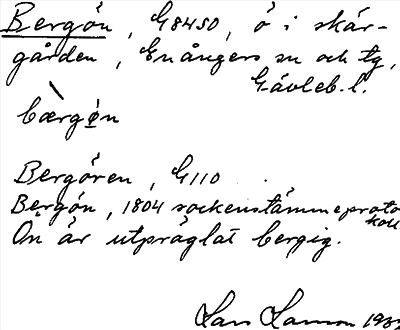 Bergön, G8450, ö i skär-
gården, Enångers sn och tg,
Gävleb. l.
bærgøn
Bergören, G110
Bergön, 1804 sockenstämmeproto
koll
Ön är utpräglat bergig.
Lars